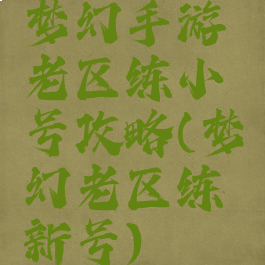 梦幻手游
老区练小
号攻略(梦
幻老区练
新号)